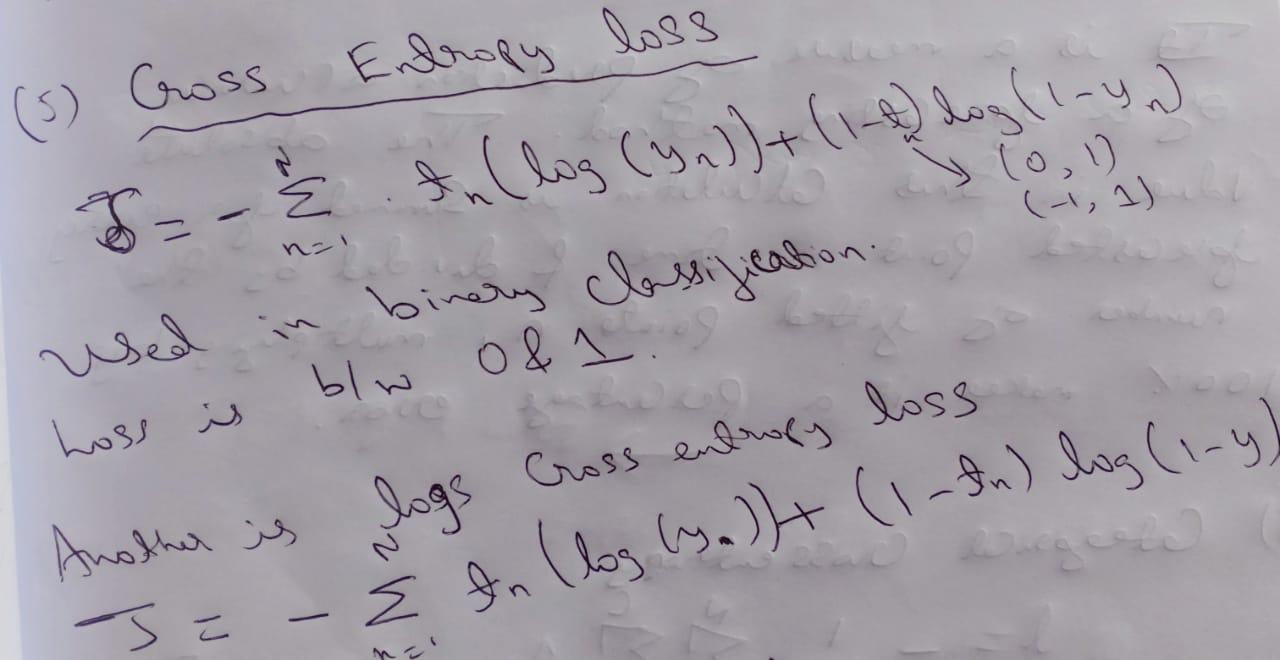 (5) Cross Entropy loss
J = - Σ_{n=1}^{N} . t_n (log(y_n)) + (1-t_n) log(1-y_n)
→ (0, 1)
(-1, 1)
Used in binary classification.
Loss is b/w 0 & 1.
Another is logs Cross entropy loss
J = - Σ_{n=1}^{N} t_n (log(y_n)) + (1-t_n) log(1-y)